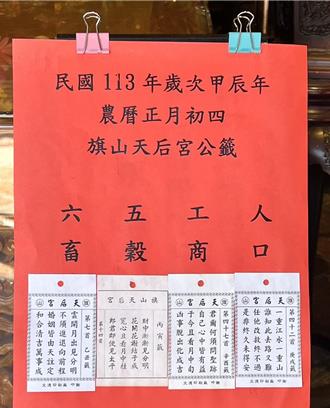 民國113年歲次甲辰年
農曆正月初四
旗山天后宮公籤
人口
工商
五穀
六畜
天后宮
第四十二首 庚戌籤
一重江水一重山
誰知此去路又難
任他改求終不過
是非終久未得安
天后宮
第四十七首 辛酉籤
君爾何須問聖跡
自己心中皆有益
於今且看月中旬
凶事脫出化成吉
旗山天后宮
丙寅籤
第十四首
財中漸漸見分明
花開花謝結子成
寬心且看月中桂
郎君即便見太平
天后宮
第七首 乙丑籤
雲開月出見分明
不須進退向前程
婚姻皆由天註定
和合清吉萬事成